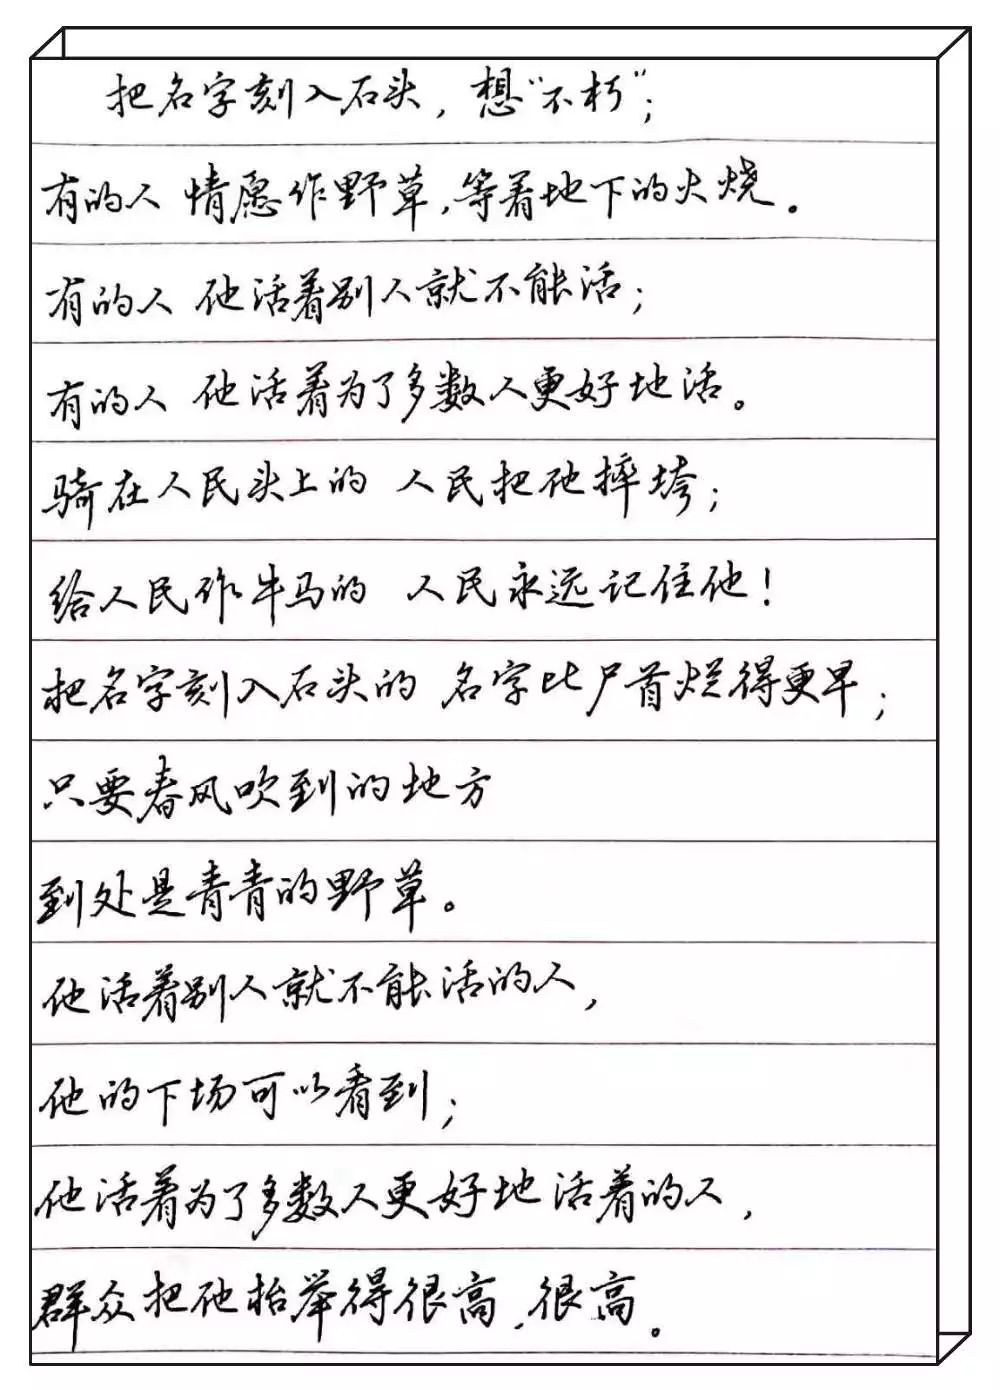 把名字刻入石头，想“不朽”；
有的人 情愿作野草，等着地下的火烧。
有的人 他活着别人就不能活；
有的人 他活着为了多数人更好地活。
骑在人民头上的 人民把他摔垮；
给人民作牛马的 人民永远记住他！
把名字刻入石头的 名字比尸首烂得更早；
只要春风吹到的地方
到处是青青的野草。
他活着别人就不能活的人，
他的下场可以看到；
他活着为了多数人更好地活着的人，
群众把他抬举得很高，很高。